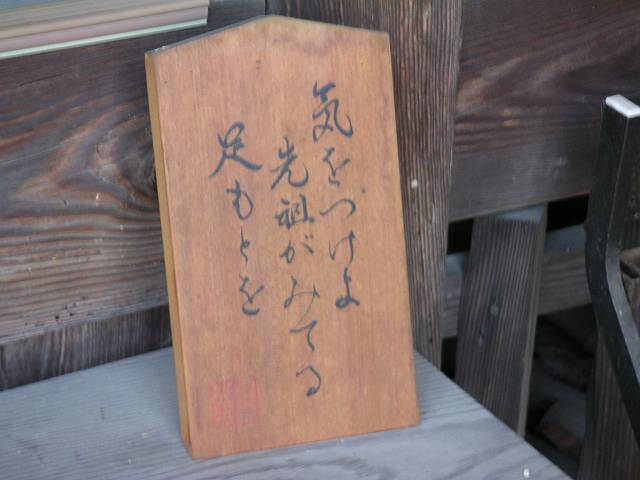 気をつけよ
先祖がみてる
足もとを